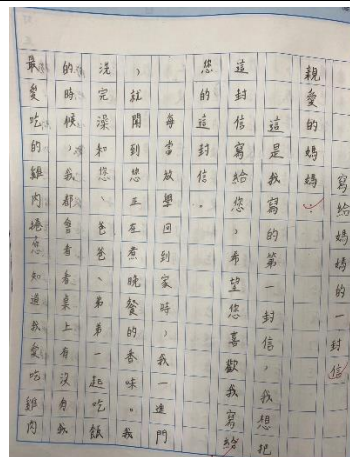 寫給媽媽的一封信
親愛的媽媽：
這是我寫的第一封信，我想把
這封信寫給您，希望您喜歡我寫給
您的這封信。
每當放學回到家時，我一進門
，就聞到您正在煮晚餐的香味。我
洗完澡和您、爸爸、弟弟一起吃飯
的時候，我都會看看桌上有沒有我
最愛吃的雞肉您知道我愛吃雞肉